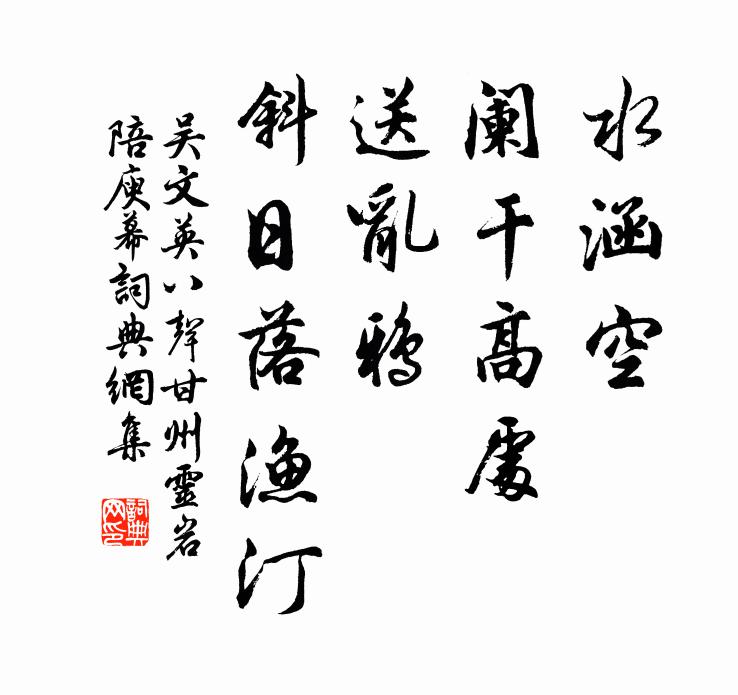 水涵空
阑干高處
送亂鴉
斜日落漁汀
吴文英八聲甘州靈岩
陪庾幕詞典網集
詞典
网印